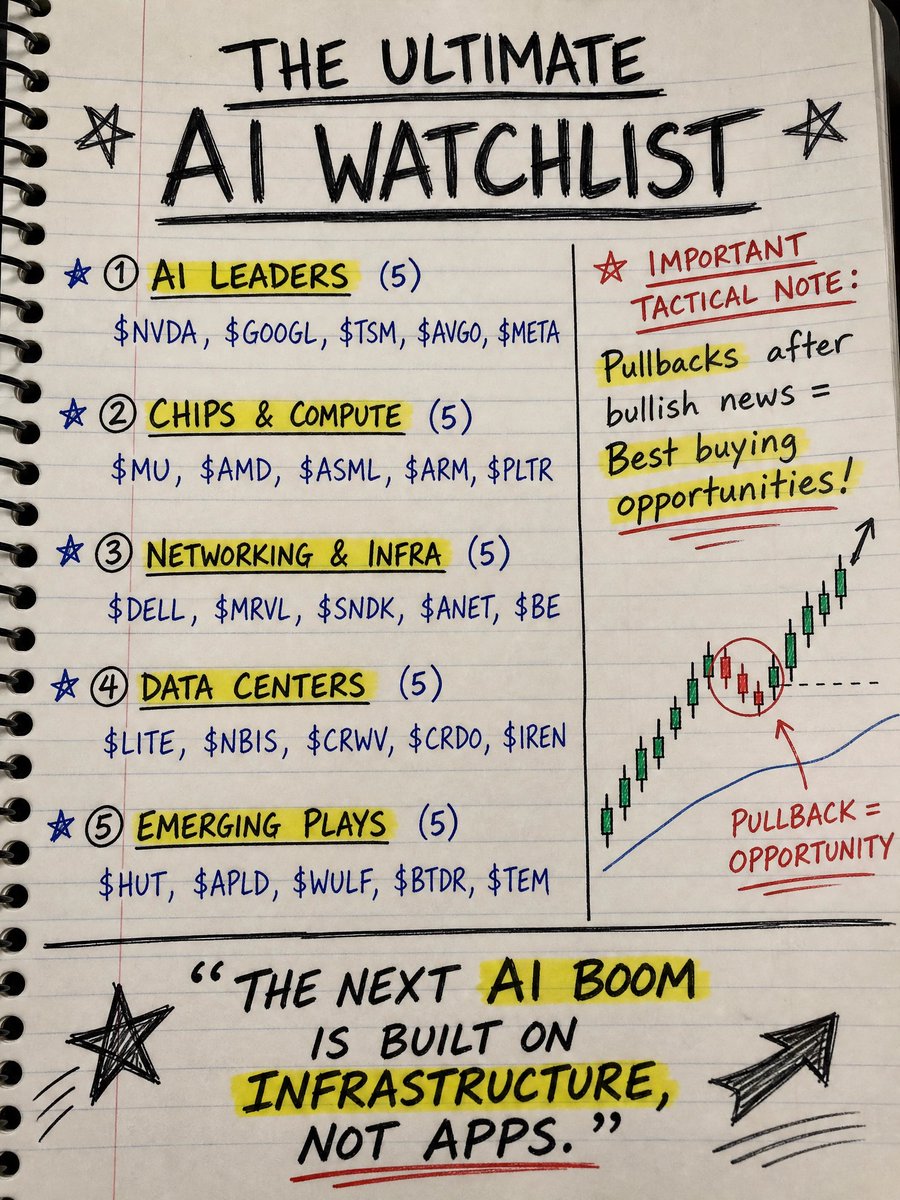 THE ULTIMATE
AI WATCHLIST
1 AI LEADERS (5)
$NVDA, $GOOGL, $TSM, $AVGO, $META
2 CHIPS & COMPUTE (5)
$MU, $AMD, $ASML, $ARM, $PLTR
3 NETWORKING & INFRA (5)
$DELL, $MRVL, $SNDK, $ANET, $BE
4 DATA CENTERS (5)
$LITE, $NBIS, $CRWV, $CRDO, $IREN
5 EMERGING PLAYS (5)
$HUT, $APLD, $WULF, $BTDR, $TEM
IMPORTANT
TACTICAL NOTE:
Pullbacks after
bullish news =
Best buying
opportunities!
PULLBACK =
OPPORTUNITY
"THE NEXT AI BOOM
IS BUILT ON
INFRASTRUCTURE,
NOT APPS."